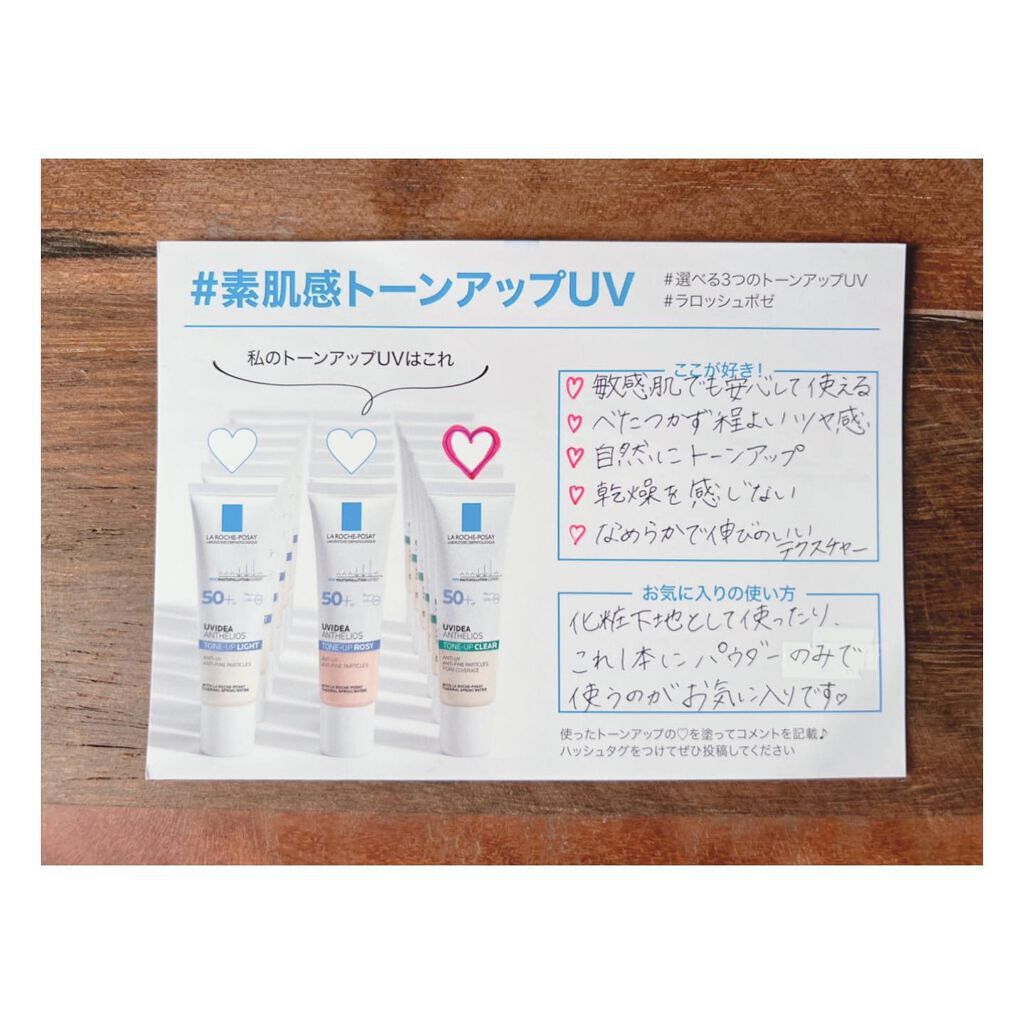 #素肌感トーンアップUV
#選べる3つのトーンアップUV
#ラロッシュポゼ
私のトーンアップUVはこれ
LA ROCHE-POSAY
LABORATOIRE DERMATOLOGIQUE
50+
UVIDEA
ANTHELIOS
TONE-UP LIGHT
ANTI-UV
ANTI-FINE PARTICLES
LA ROCHE-POSAY
LABORATOIRE DERMATOLOGIQUE
50+
UVIDEA
ANTHELIOS
TONE-UP ROSY
ANTI-UV
ANTI-FINE PARTICLES
LA ROCHE-POSAY
LABORATOIRE DERMATOLOGIQUE
50+
UVIDEA
ANTHELIOS
TONE-UP CLEAR
ANTI-UV
ANTI-FINE PARTICLES
PORE COVERAGE
ここが好き!
♡ 敏感肌でも安心して使える
♡ べたつかず程よいツヤ感
♡ 自然にトーンアップ
♡ 乾燥を感じない
♡ なめらかで伸びのいい
テクスチャー
お気に入りの使い方
化粧下地として使ったり、
これ1本にパウダーのみで
使うのがお気に入りです♡
使ったトーンアップの♡を塗ってコメントを記載♪
ハッシュタグをつけてぜひ投稿してください